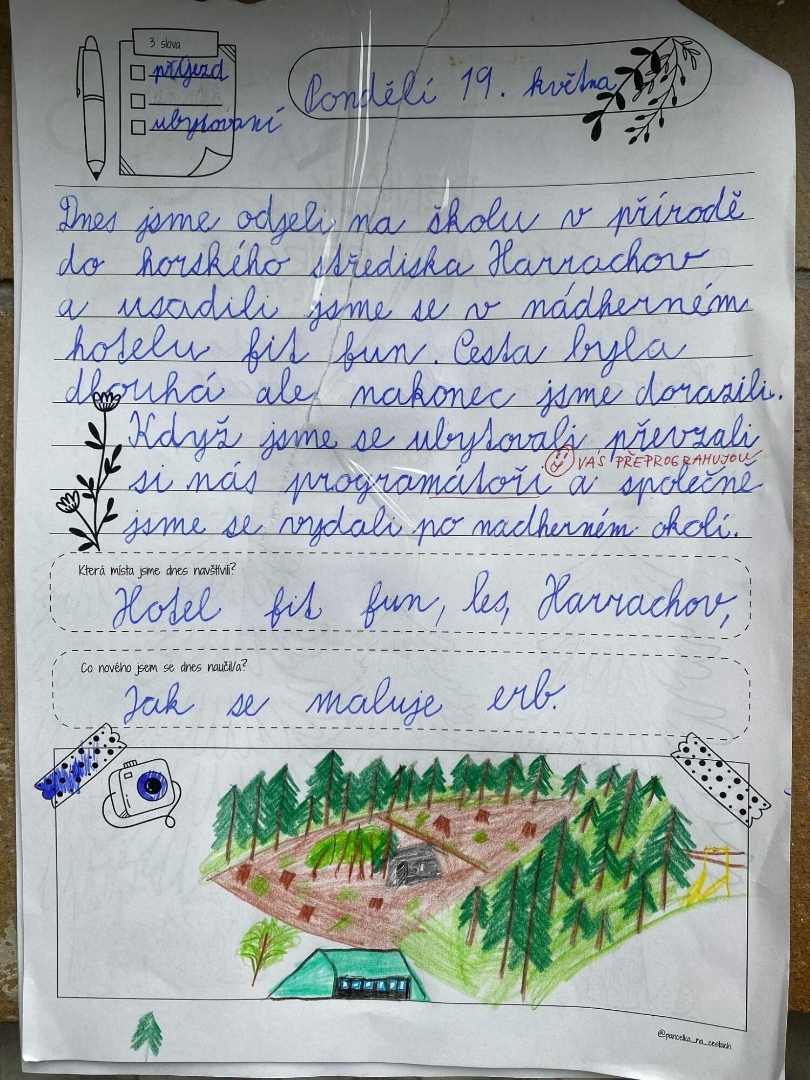 3 slova
příjezd
ubytovaní
Pondělí 19. května
Dnes jsme odjeli na školu v přírodě
do horského střediska Harrachov
a usadili jsme se v nádherném
hotelu fit fun. Cesta byla
dlouhá ale nakonec jsme dorazili.
Když jsme se ubytovali převzali
VÁS PŘEPROGRAMUJOU
si nás programátoři a společně
jsme se vydali po nadherném okolí.
Která místa jsme dnes navštívili?
Hotel fit fun, les, Harrachov,
Co nového jsem se dnes naučil/a?
Jak se maluje erb.
@pancelka_na_cestach